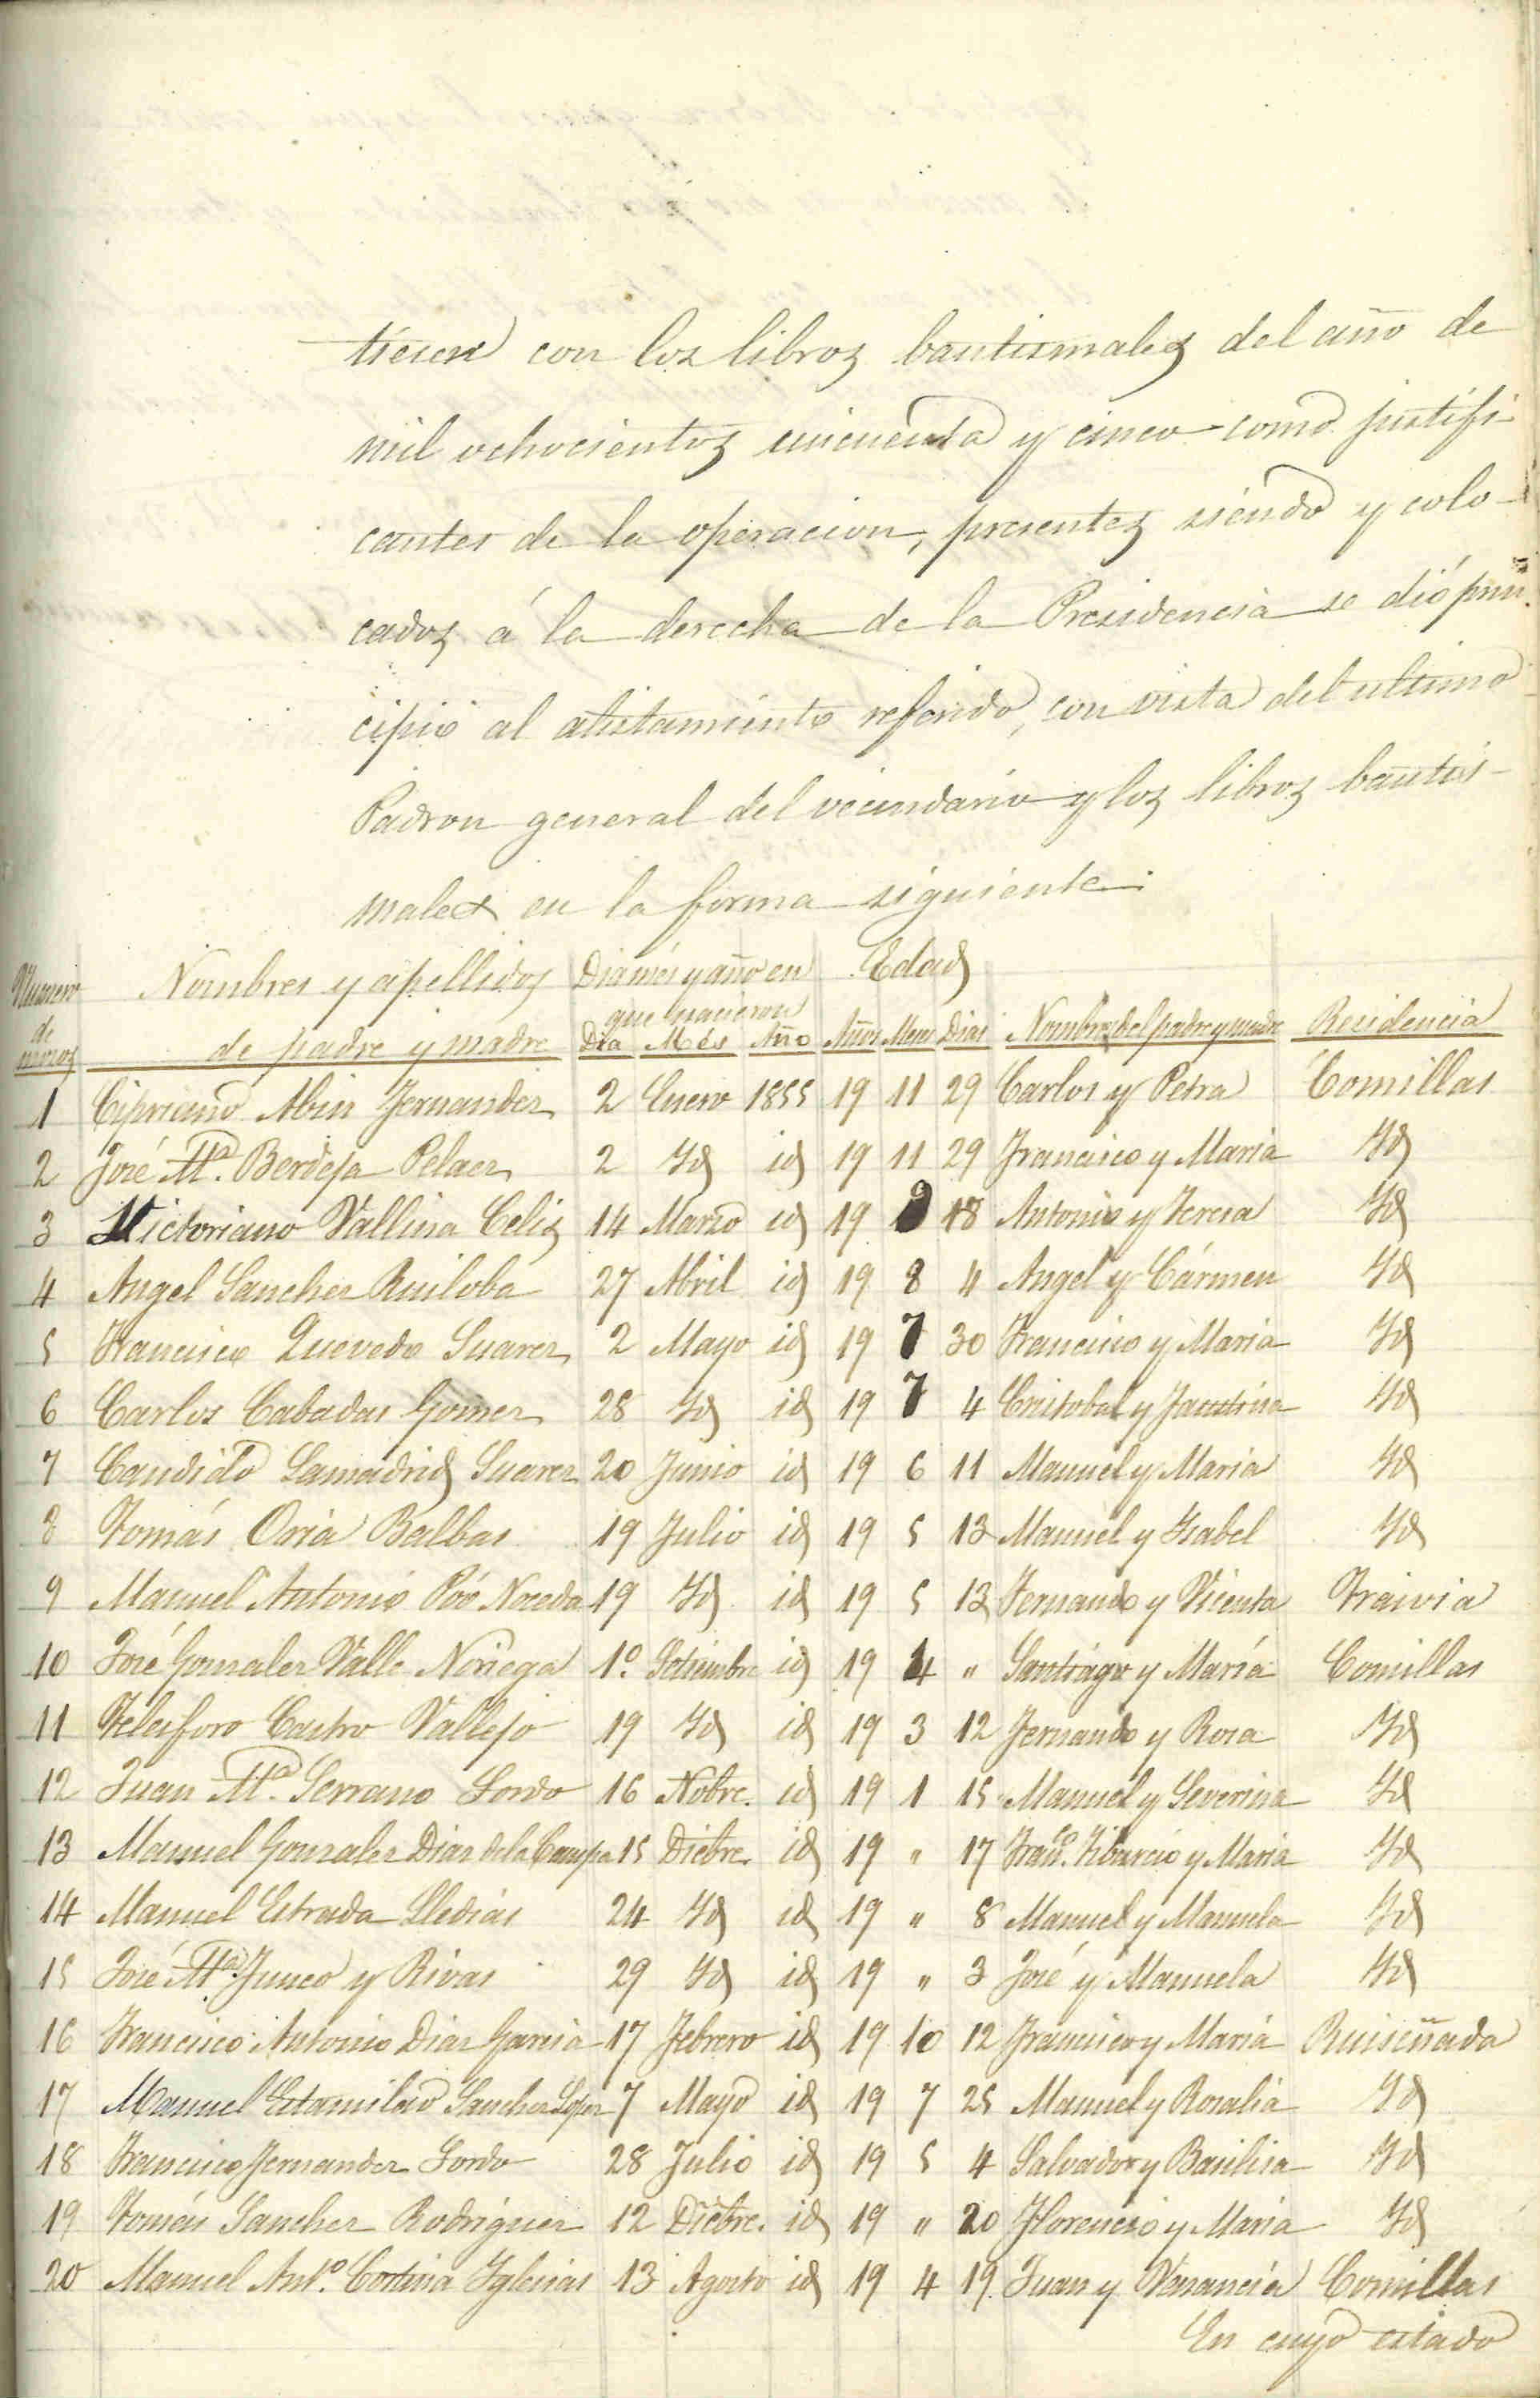 tieren con los libros bautismales del año de
mil ochocientos cincuenta y cinco como justifi-
cantes de la operacion, presentes siendo y colo-
cados á la derecha de la Presidencia se dió prin-
cipio al alistamiento referido, con vista del ultimo
Padron general del vecindario y los libros bautis-
males en la forma siguiente.
Numero de mozos Nombres y apellidos de padre y madre Dia mes y año en que nacieron Edad
Dia Més Año Años Meses Dias Nombres del padre y madre Residencia
1 Cipriano Abin Fernandez 2 Enero 1855 19 11 29 Carlos y Petra Comillas
2 José Mª. Berdeja Pelaez 2 Id id 19 11 29 Francisco y Maria Id
3 Victoriano Vallina Celis 14 Marzo id 19 9 18 Antonio y Teresa Id
4 Angel Sanchez Ruiloba 27 Abril id 19 8 4 Angel y Cármen Id
5 Francisco Quevedo Suarez 2 Mayo id 19 7 30 Francisco y Maria Id
6 Carlos Cabadas Gomez 28 Id id 19 7 4 Cristobal y Faustina Id
7 Candido Lamadrid Suarez 20 Junio id 19 6 11 Manuel y Maria Id
8 Tomás Oria Balbas 19 Julio id 19 5 13 Manuel y Isabel Id
9 Manuel Antonio Poó Noceda 19 Id id 19 5 13 Fernando y Vicenta Trasvia
10 José Gonzalez Valle Noriega 1º. Setiembre id 19 4 " Santiago y María Comillas
11 Telesforo Castro Vallejo 19 Id id 19 3 12 Fernando y Rosa Id
12 Juan Mª. Serrano Sordo 16 Nobre. id 19 1 15 Manuel y Severina Id
13 Manuel Gonzalez Diaz de la Campa 15 Diebre. id 19 " 17 Franco. Tiburcio y Maria Id
14 Manuel Estrada Lledias 24 Id id 19 " 8 Manuel y Manuela Id
15 José Mª. Junco y Rivas 29 Id id 19 " 3 José y Manuela Id
16 Francisco Antonio Diaz Garcia 17 Febrero id 19 10 12 Francisco y Maria Ruiseñada
17 Manuel Estanislao Sanchez Lopez 7 Mayo id 19 7 25 Manuel y Rosalia Id
18 Francisco Fernandez Sordo 28 Julio id 19 5 4 Salvador y Basilisa Id
19 Tomás Sanchez Rodriguez 12 Diebre. id 19 " 20 Florencio y Maria Id
20 Manuel Antº. Cortina Iglesias 13 Agosto id 19 4 19 Juan y Venancia Comillas
En cuyo estado